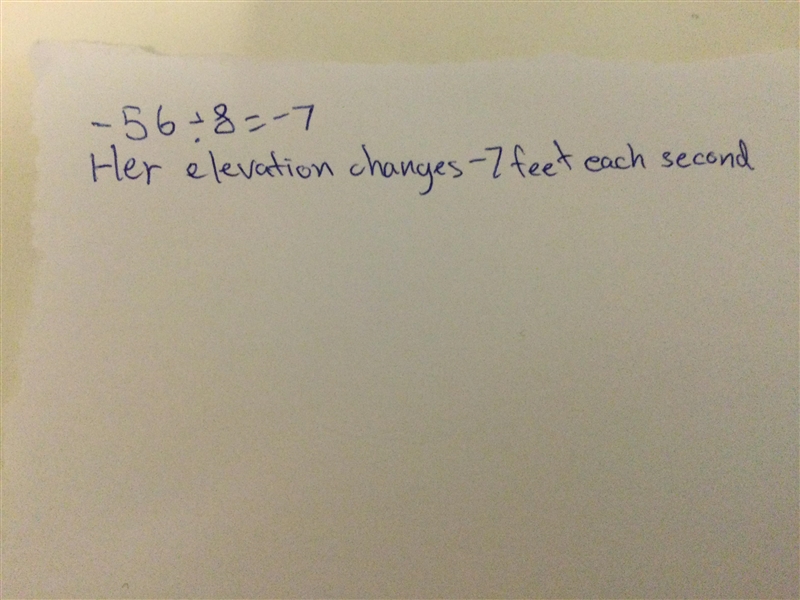 -56÷8=-7
Her elevation changes -7 feet each second